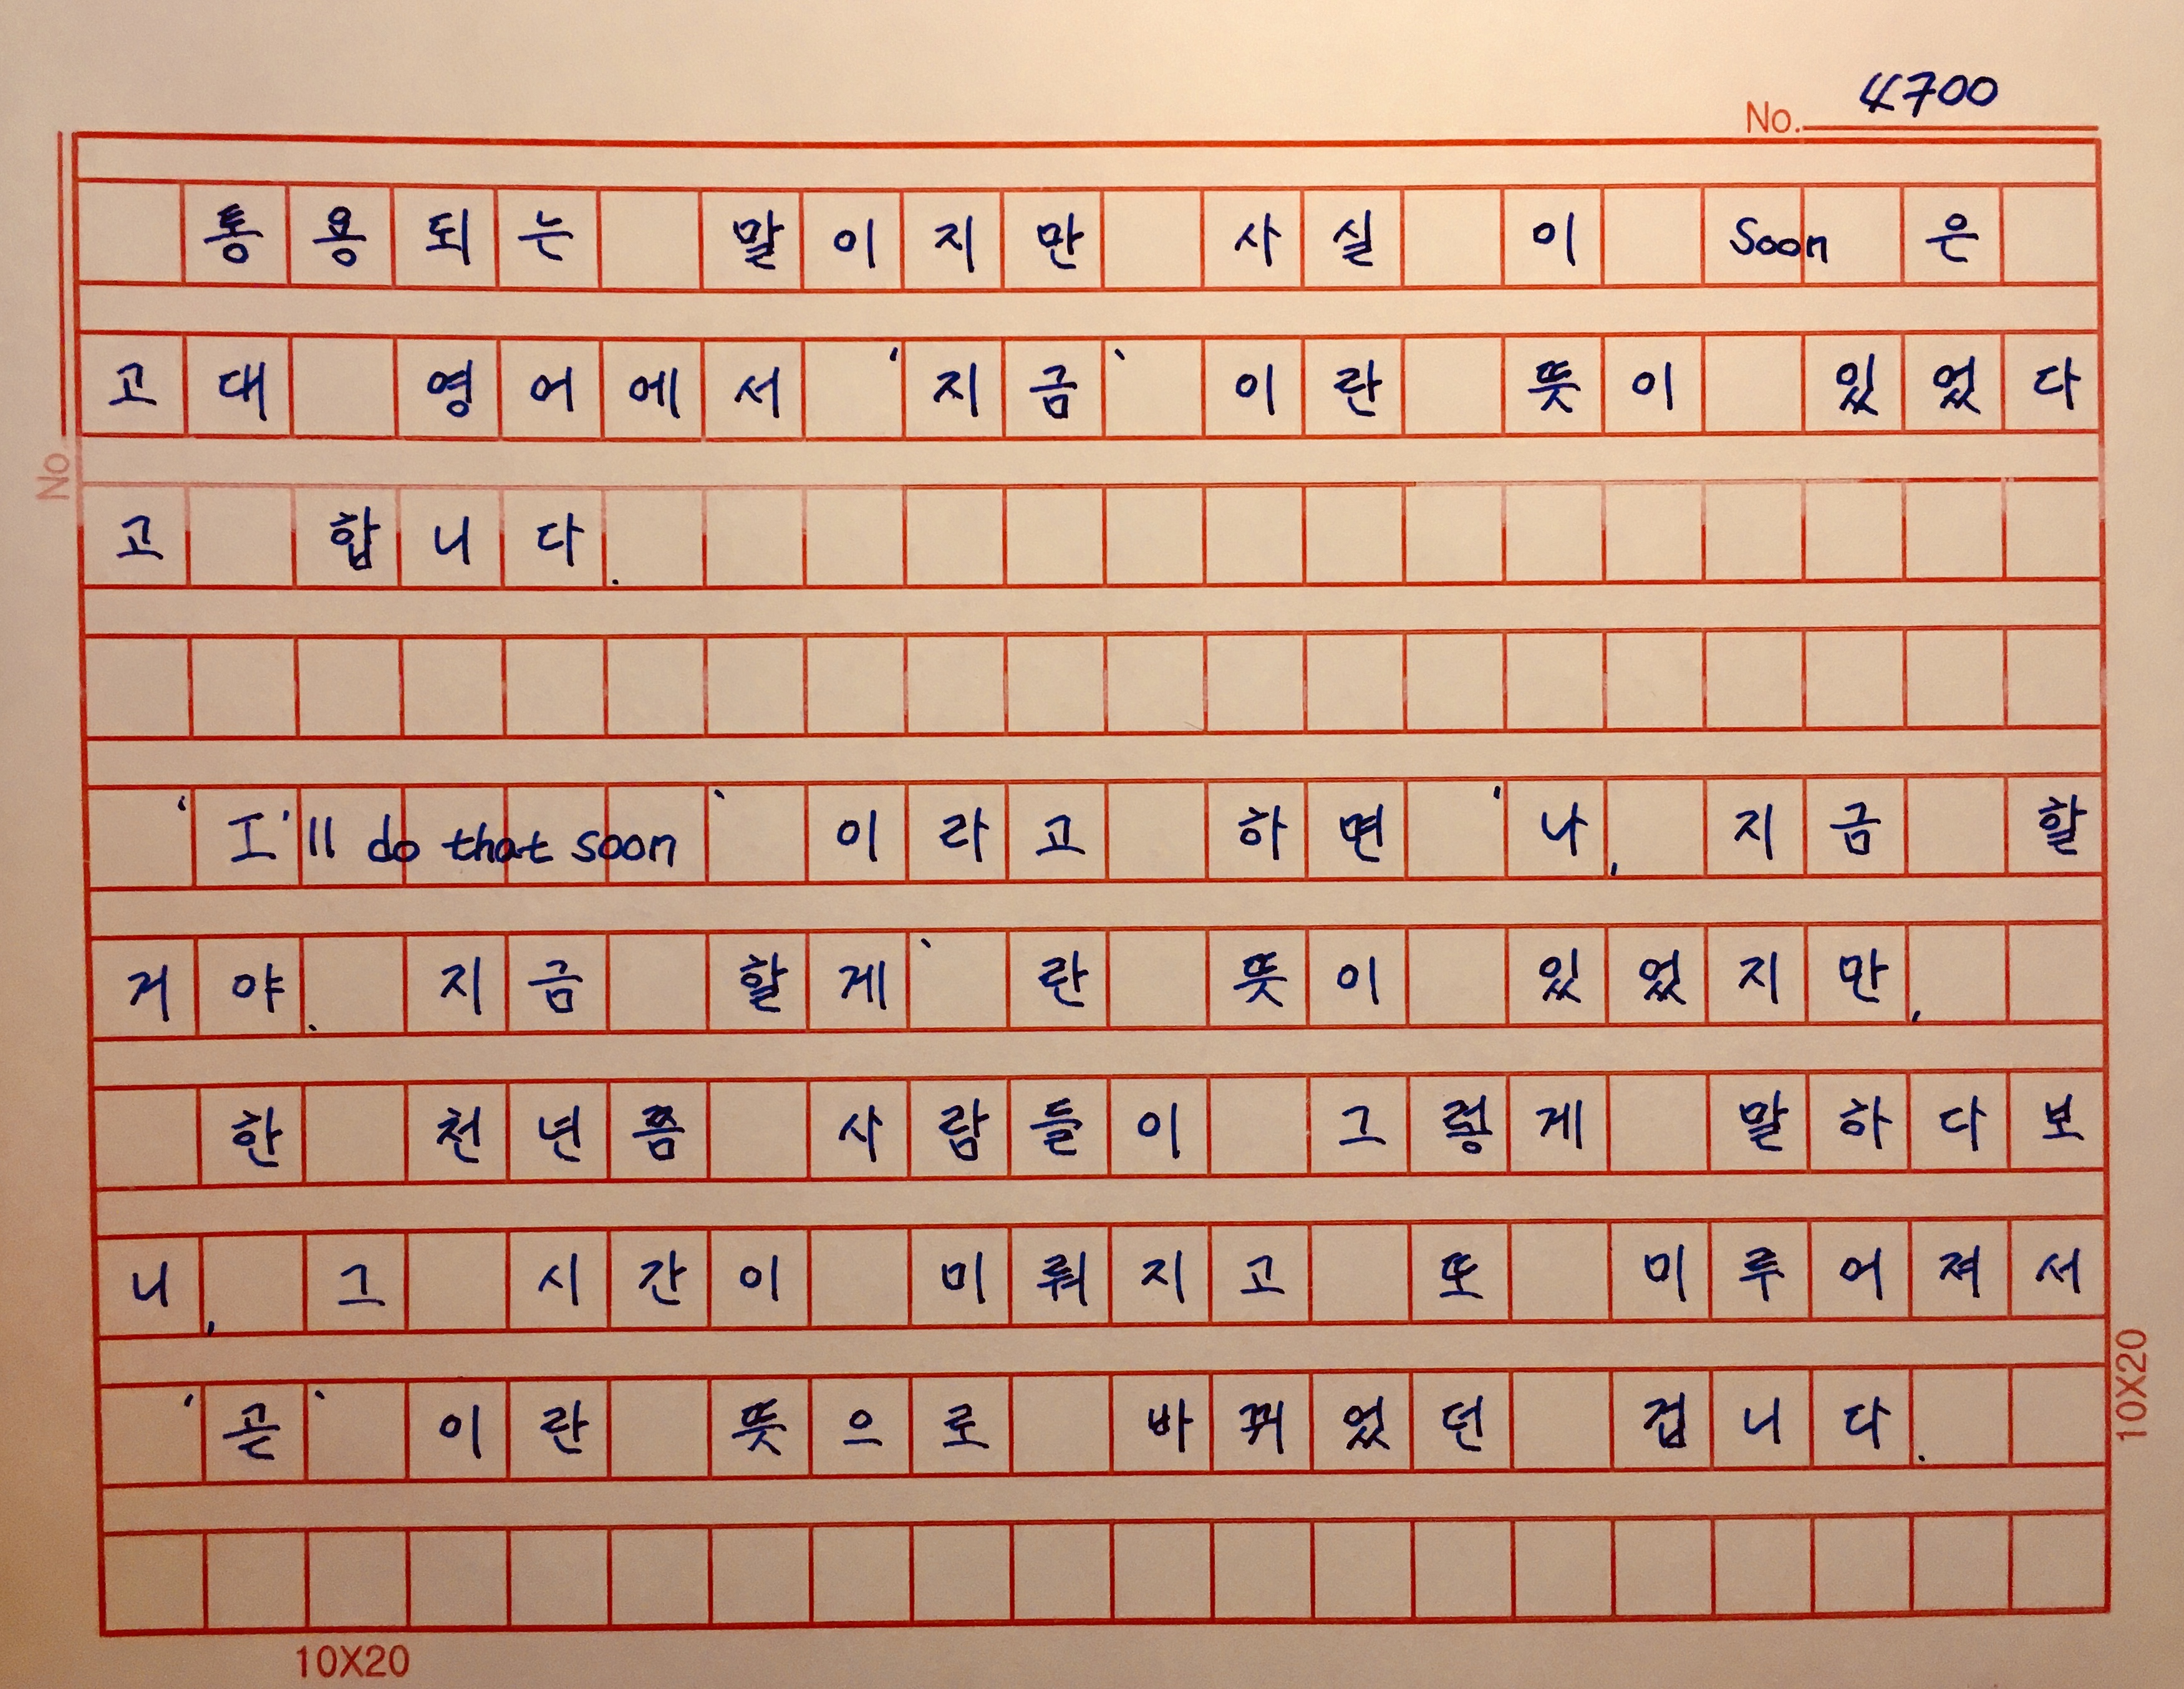 No. 4700
통용되는 말이지만 사실 이 Soon 은
고대 영어에서 '지금' 이란 뜻이 있었다
No
고 합니다.
'I'll do that soon' 이라고 하면 '나, 지금 할
거야. 지금 할게' 란 뜻이 있었지만,
한 천년쯤 사람들이 그렇게 말하다보
니, 그 시간이 미뤄지고 또 미루어져서
'곧' 이란 뜻으로 바뀌었던 겁니다.
10X20
10X20